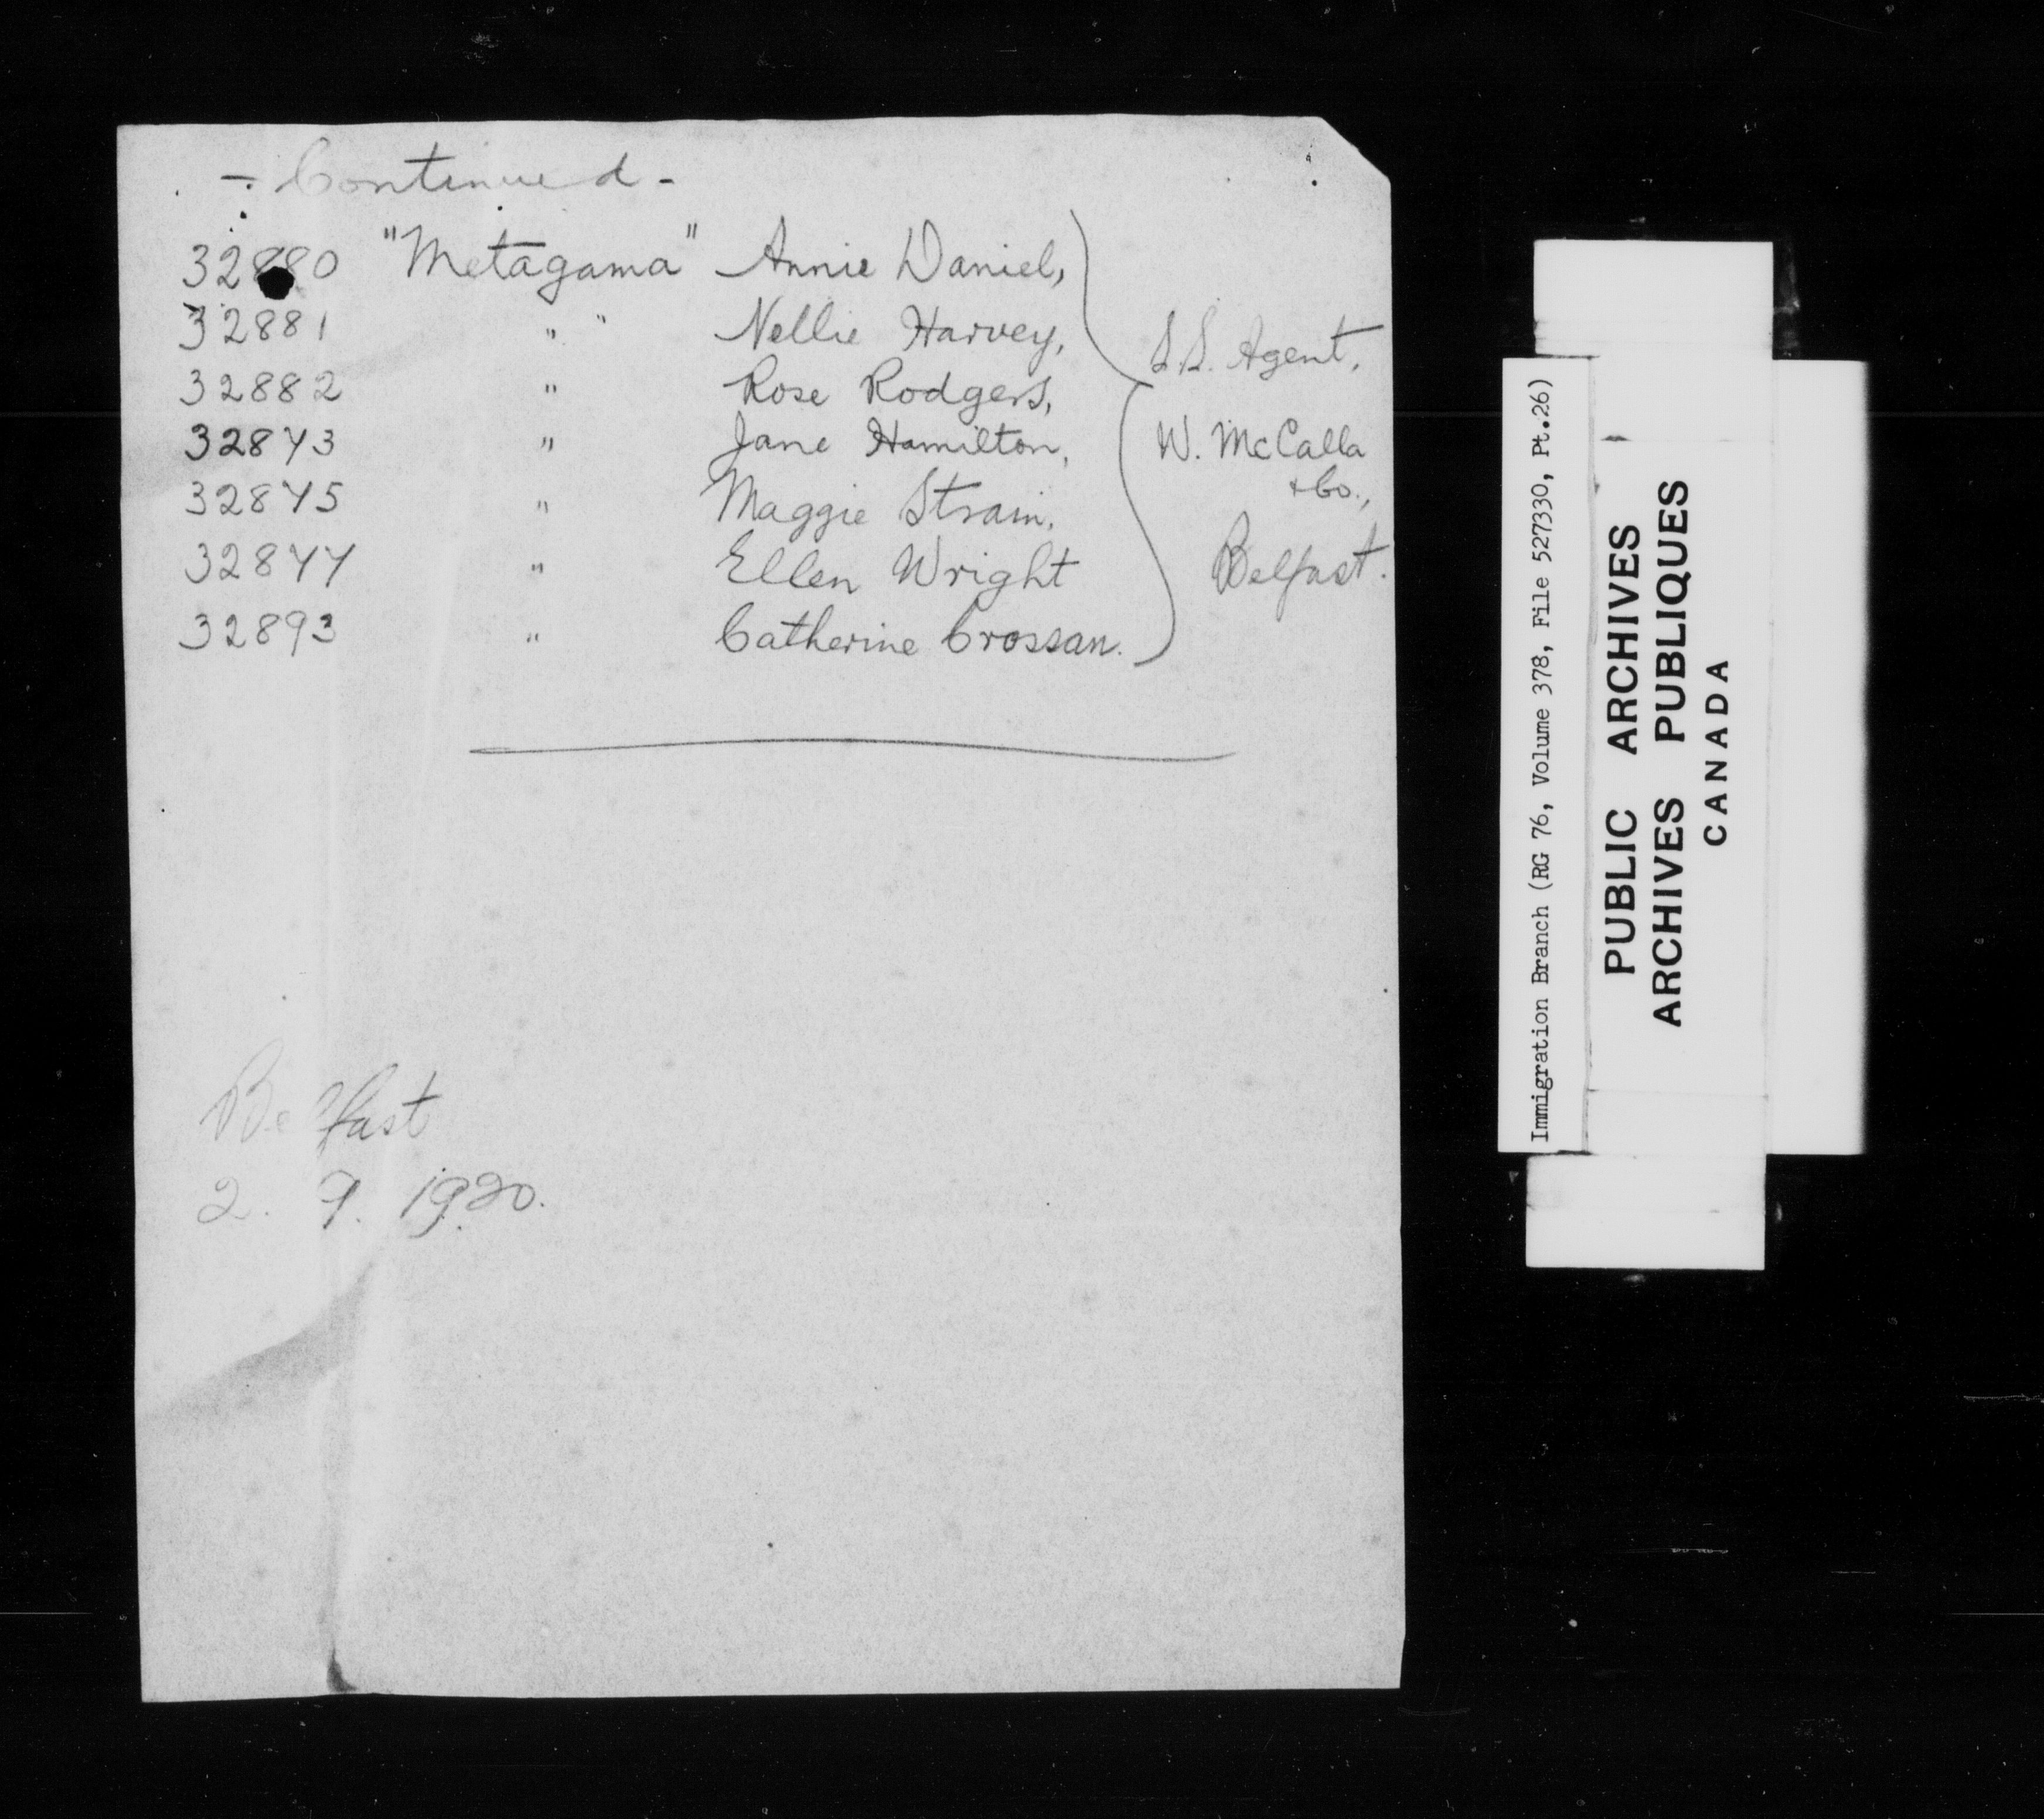 - Continued -
32880 "Metagama" Annie Daniel,
32881 " " Nellie Harvey,
32882 " Rose Rodgers,
32873 " Jane Hamilton,
32875 " Maggie Strain,
32877 " Ellen Wright
32893 " Catherine Crossan.
S.S. Agent,
W. McCalla
& Co.,
Belfast.
Belfast
2. 9. 1920.
Immigration Branch (RG 76, Volume 378, File 527330, Pt.26)
PUBLIC ARCHIVES
ARCHIVES PUBLIQUES
CANADA